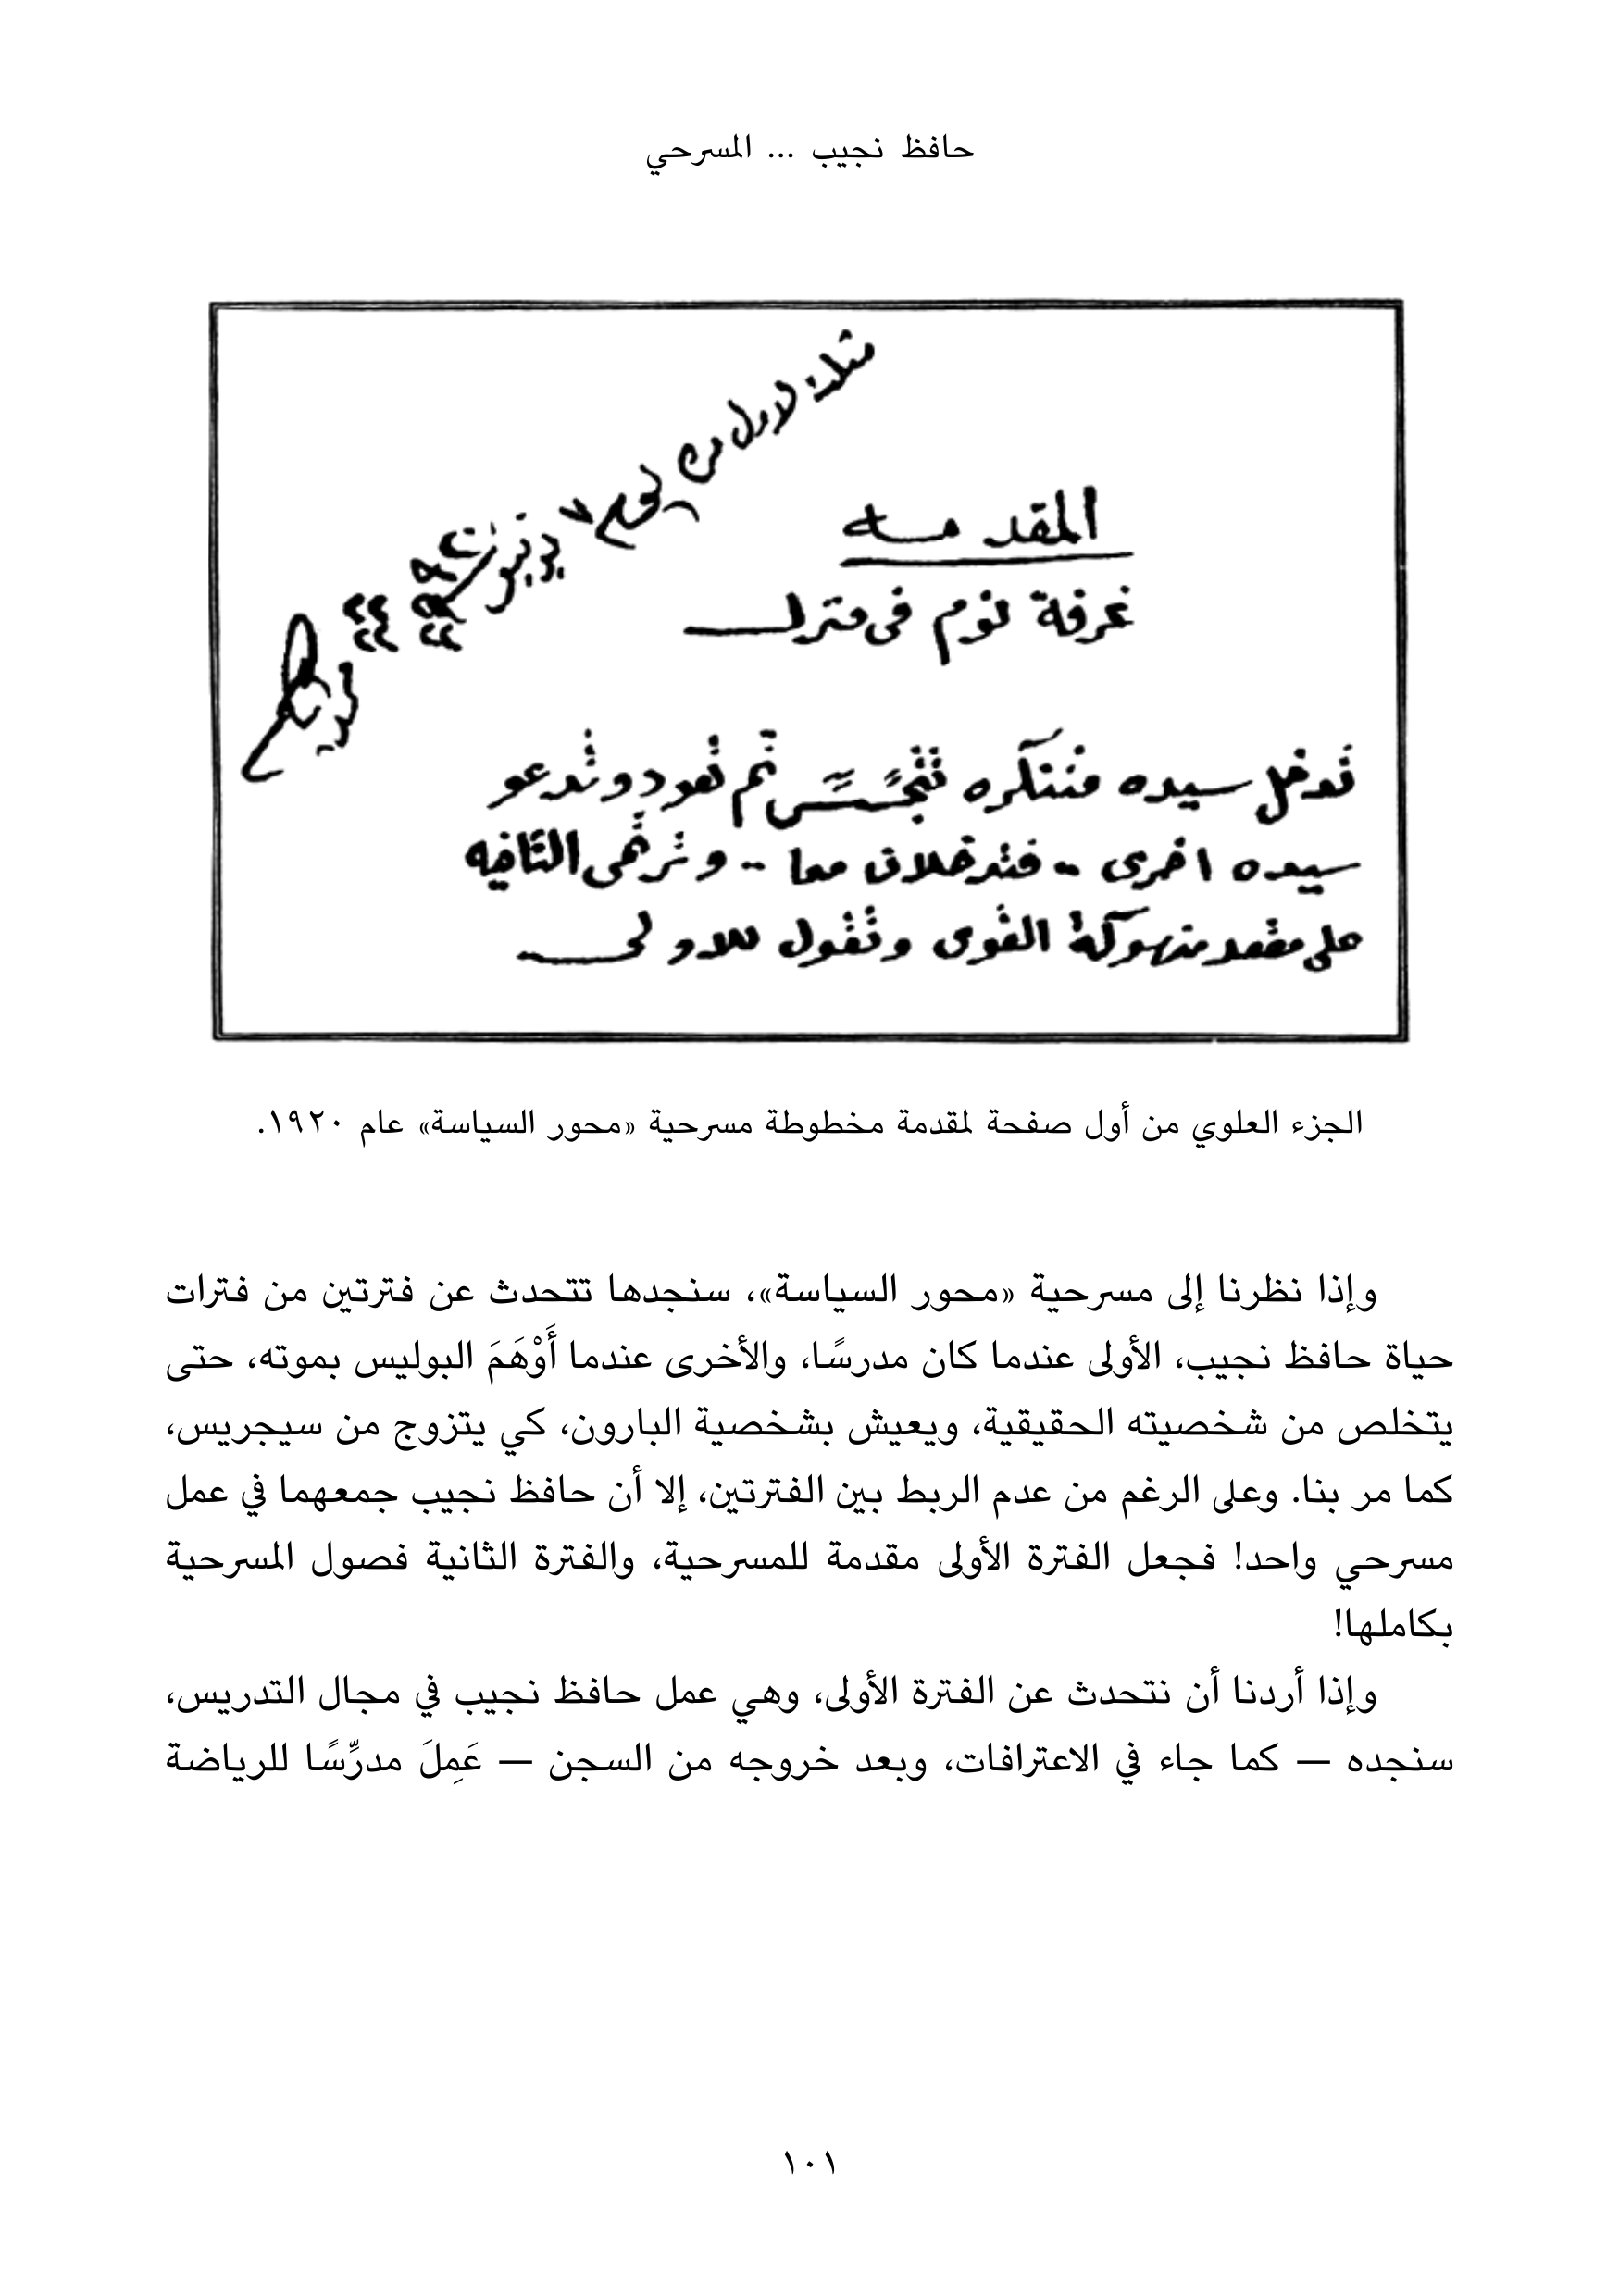 حافظ نجيب ... المسرحي
مثلت لاول مره يوم ٧ يونيو
المقدمـــه
غرفة نوم في منزلـــــ
تدخل سيده متنكره تتجسس ثم تعود وتدعو
سيده اخرى -- فتدخلان معا -- وترتمى الثانيه
على مقعد منهوكة القوى وتقول للاولىـــــ
الجزء العلوي من أول صفحة لمقدمة مخطوطة مسرحية «محور السياسة» عام ١٩٢٠.
وإذا نظرنا إلى مسرحية «محور السياسة»، سنجدها تتحدث عن فترتين من فترات
حياة حافظ نجيب، الأولى عندما كان مدرسًا، والأخرى عندما أَوْهَمَ البوليس بموته، حتى
يتخلص من شخصيته الحقيقية، ويعيش بشخصية البارون، كي يتزوج من سيجريس،
كما مر بنا. وعلى الرغم من عدم الربط بين الفترتين، إلا أن حافظ نجيب جمعهما في عمل
مسرحي واحد! فجعل الفترة الأولى مقدمة للمسرحية، والفترة الثانية فصول المسرحية
بكاملها!
وإذا أردنا أن نتحدث عن الفترة الأولى، وهي عمل حافظ نجيب في مجال التدريس،
سنجده — كما جاء في الاعترافات، وبعد خروجه من السجن — عَمِلَ مدرِّسًا للرياضة
١٠١